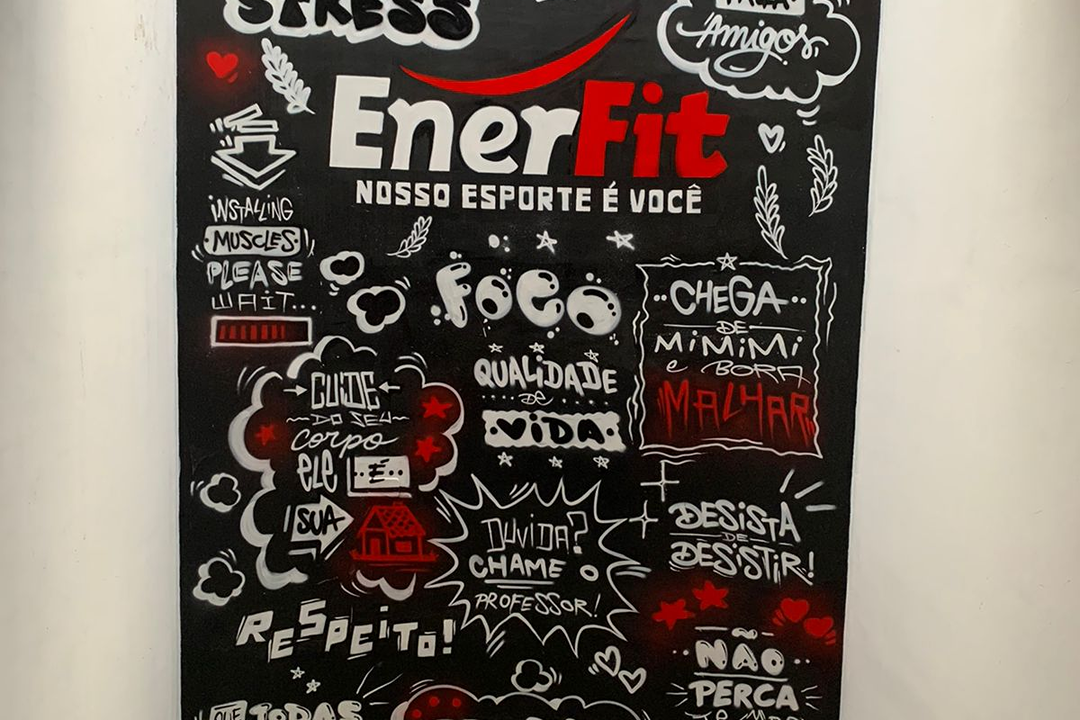 STRESS
Amigos
EnerFit
NOSSO ESPORTE É VOCÊ
INSTALLING
MUSCLES
PLEASE
WAIT...
FOCO
CHEGA
DE
MiMiMi
e BORA
MALHAR
QUALIDADE
DE
VIDA
CUIDE
DO SEU
corpo
ELE É
SUA
DUVIDA?
CHAME O
PROFESSOR!
DESISTA
DE
DESISTIR!
RESPEITO!
NÃO
PERCA
QUE TODAS